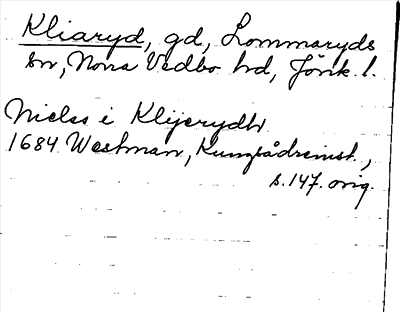 Kliaryd, gd, Lommaryds
sn, Norra Vedbo hd, Jönk. l.
Niels i Klijerydh
1684 Westman, Kungsådreinst.,
s. 147. orig.